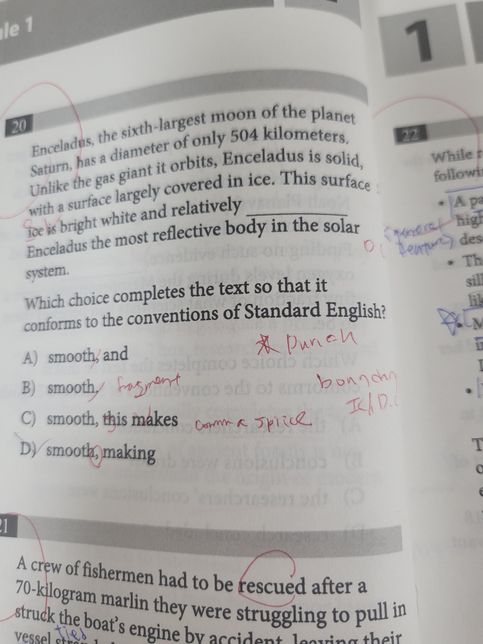 le 1
1
20
Enceladus, the sixth-largest moon of the planet
Saturn, has a diameter of only 504 kilometers.
Unlike the gas giant it orbits, Enceladus is solid,
with a surface largely covered in ice. This surface
ice is bright white and relatively ___________
Enceladus the most reflective body in the solar
system.
Which choice completes the text so that it
conforms to the conventions of Standard English?
A) smooth, and
B) smooth, fragment
C) smooth, this makes comma splice
D) smooth, making
21
A crew of fishermen had to be rescued after a
70-kilogram marlin they were struggling to pull in
struck the boat's engine by accident, leaving their
vessel
22
While
followi
• A pa
high
des
• Th
sil
lik